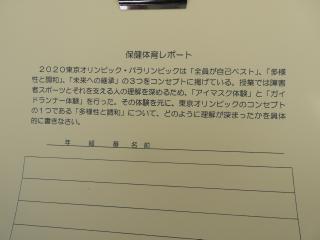 保健体育レポート
2020東京オリンピック・パラリンピックは「全員が自己ベスト」、「多様
性と調和」、「未来への継承」の3つをコンセプトに掲げている。授業では障害
者スポーツとそれを支える人の理解を深めるため、「アイマスク体験」と「ガイ
ドランナー体験」を行った。その体験を元に、東京オリンピックのコンセプト
の1つである「多様性と調和」について、どのように理解が深まったかを具体
的に書きなさい。
年 組 番 名前